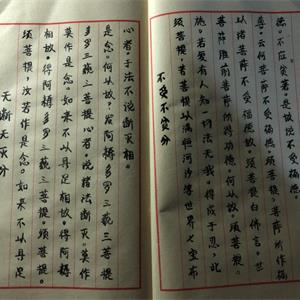 无断无灭分
须菩提。汝若作是念。如来不以具足
相故。得阿耨多罗三藐三菩提。须菩提。
莫作是念。如来不以具足相故。得阿耨
多罗三藐三菩提心者。说诸法断灭。莫作
是念。何以故。发阿耨多罗三藐三菩提
心者。于法不说断灭相。
不受不贪分
须菩提。若菩萨以满恒河沙等世界七宝布
施。若复有人。知一切法无我。得成于忍。此
菩萨胜前菩萨所得功德。何以故。须菩提。
以诸菩萨不受福德故。须菩提白佛言。世
尊。云何菩萨不受福德。须菩提。菩萨所作福
德。不应贪著。是故说不受福德。